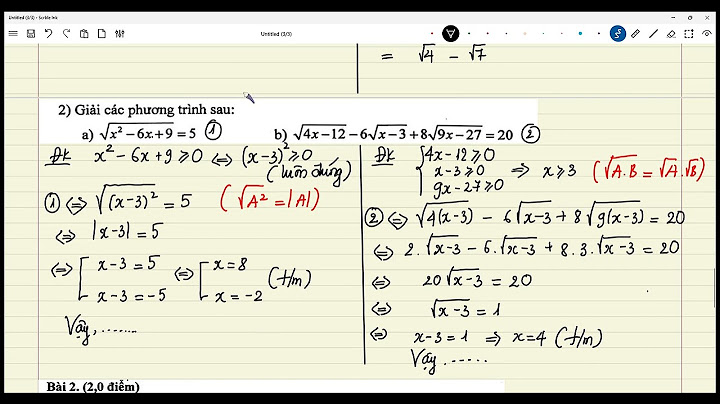 Untitled (3/3) - Scrble Ink
Untitled (3/3)
= √4 - √7
2) Giải các phương trình sau:
a) √(x² - 6x + 9) = 5 ①
b) √(4x-12) - 6√(x-3) + 8√(9x-27) = 20 ②
ĐK x² - 6x + 9 ⩾ 0 ⇔ (x-3)² ⩾ 0
(luôn đúng)
① ⇔ √((x-3)²) = 5 (√A² = |A|)
⇔ |x-3| = 5
⇔ [ x-3 = 5 ⇔ [ x = 8 (t/m)
x-3 = -5 x = -2
Vậy, .......
ĐK { 4x-12 ⩾ 0
x-3 ⩾ 0 ⇒ x ⩾ 3 (√A.B = √A.√B)
9x-27 ⩾ 0
② ⇔ √(4(x-3)) - 6√(x-3) + 8√(9(x-3)) = 20
⇔ 2.√(x-3) - 6.√(x-3) + 8.3.√(x-3) = 20
⇔ 20√(x-3) = 20
⇔ √(x-3) = 1
⇔ x-3 = 1 ⇒ x = 4 (t/m)
Vậy ......
Bài 2. (2,0 điểm)